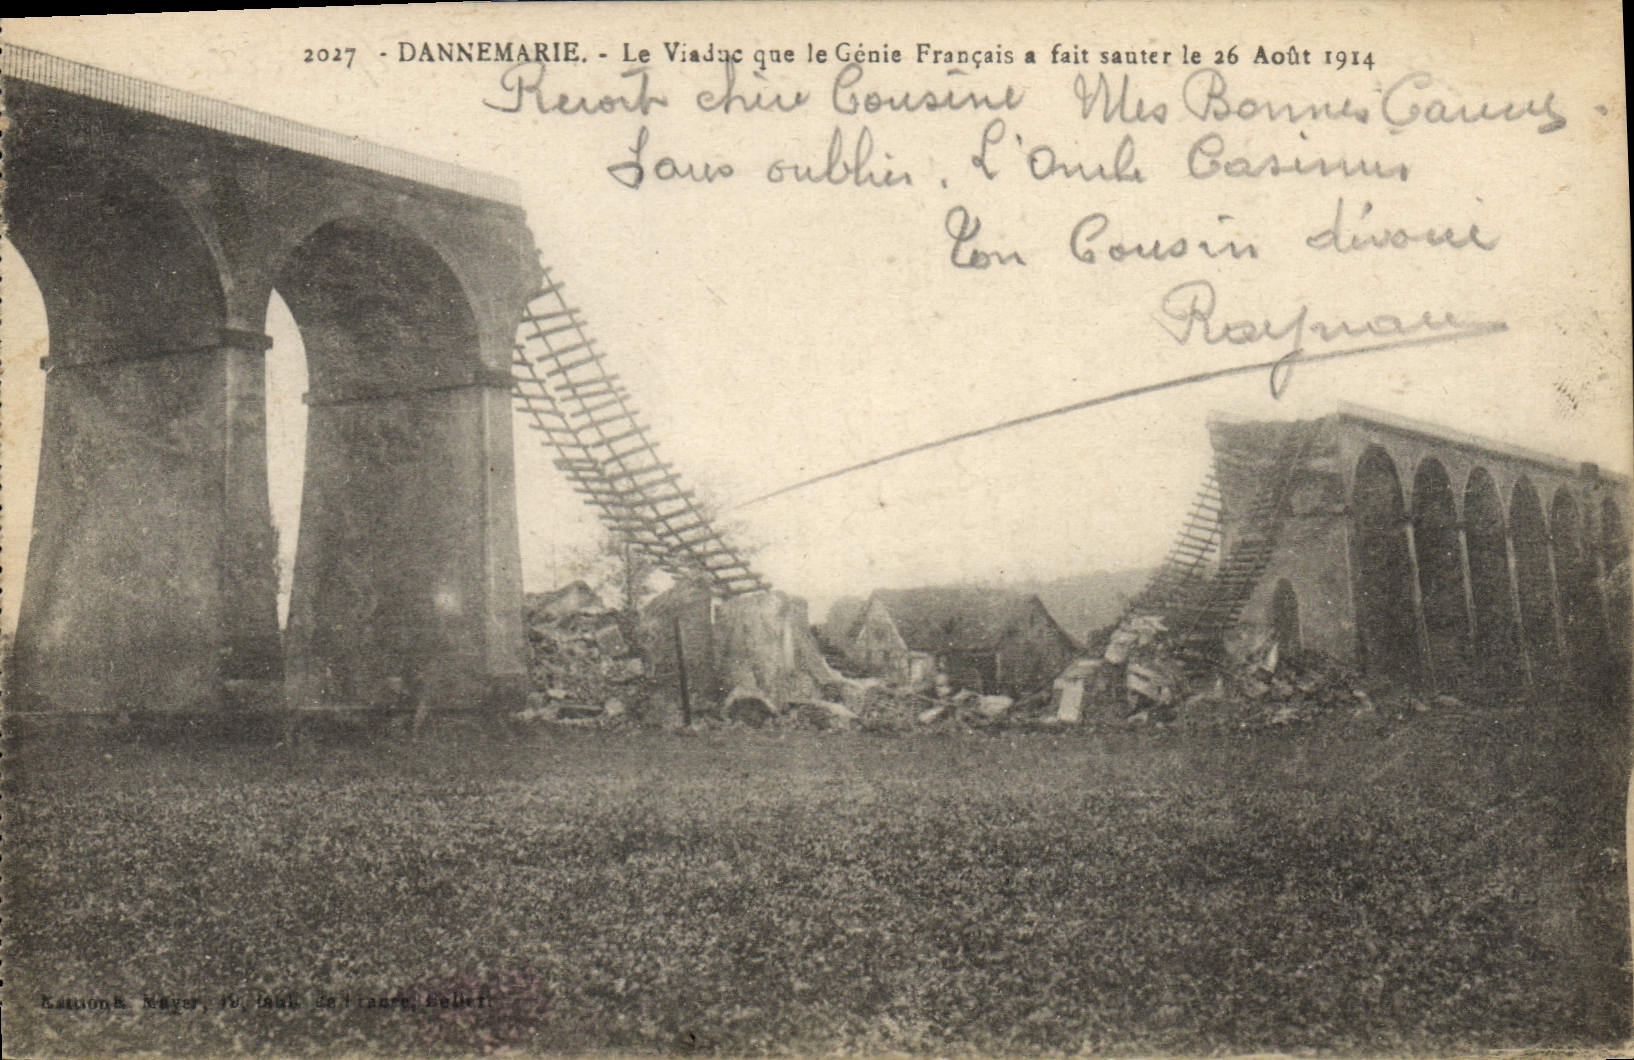 2027 - DANNEMARIE. - Le Viaduc que le Génie Français a fait sauter le 26 Août 1914
chère Cousine Mes Bonnes
Sans oublier. L'Oncle Casimir
Ton Cousin dévoué
Mayer, de France, Belfort